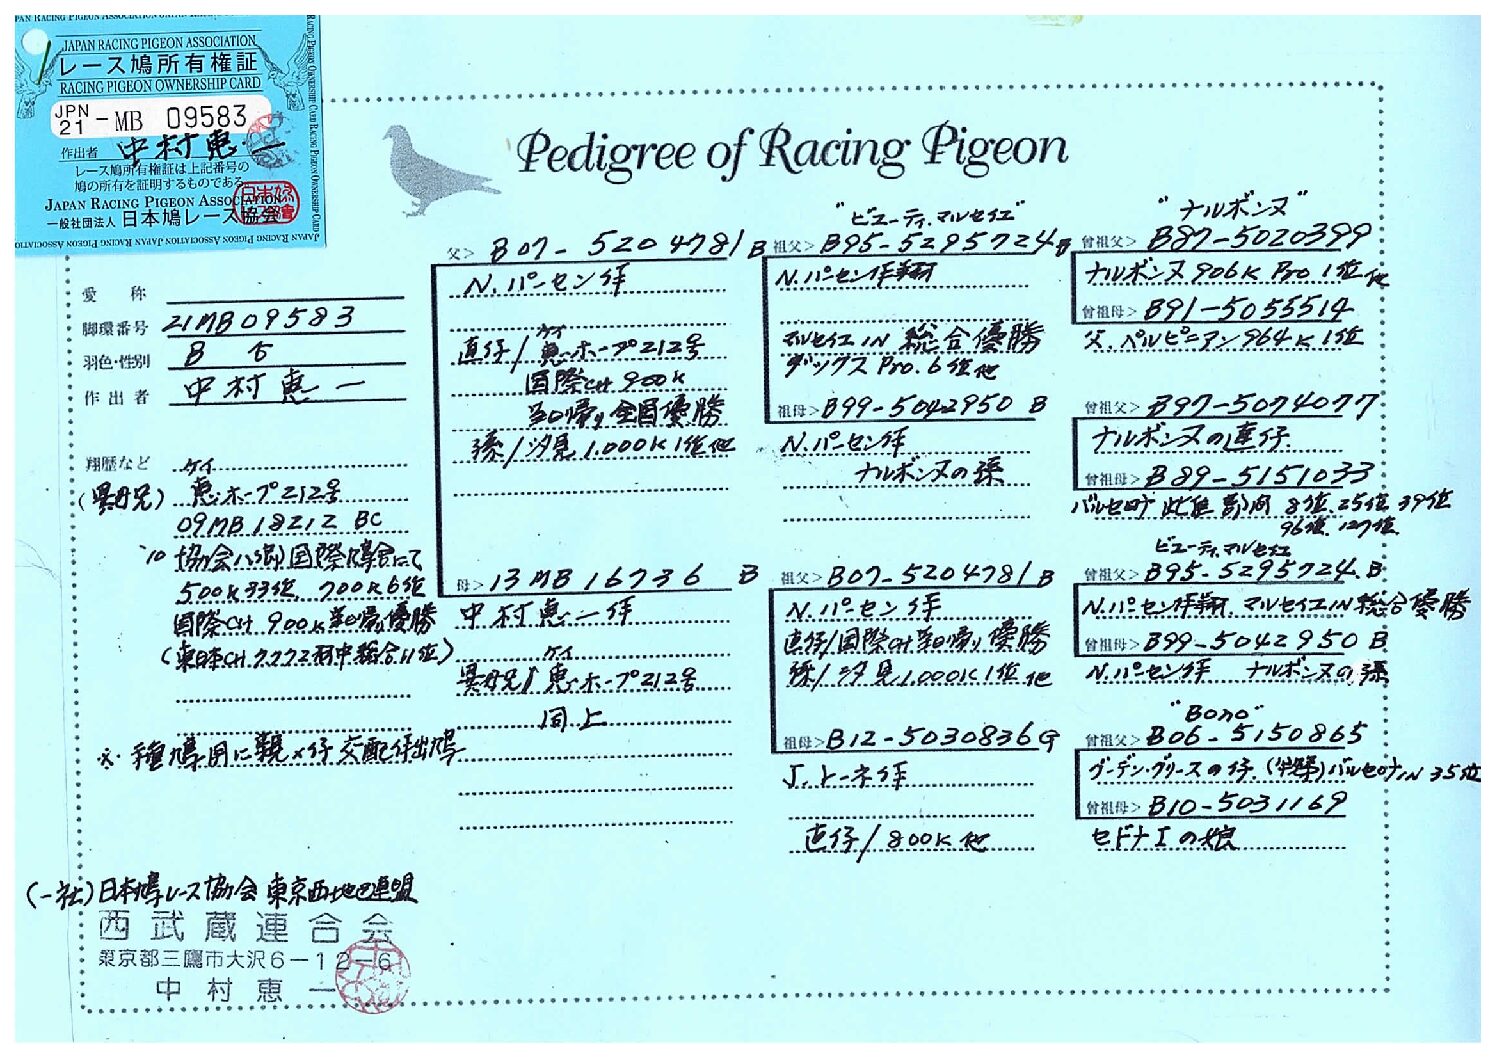 JAPAN RACING PIGEON ASSOCIATION
レース鳩所有権証
RACING PIGEON OWNERSHIP CARD
JPN
21-MB 09583
作出者 中村恵一
レース鳩所有権証は上記番号の
鳩の所有を証明するものである
JAPAN RACING PIGEON ASSOCIATION
一般社団法人 日本鳩レース協会
Pedigree of Racing Pigeon
愛 称
脚環番号 21MB09583
羽色・性別 B
作出者 中村恵一
翔歴など ケイ
(異母兄) 恵ホープ212号
09MB18212 BC
'10 協会八郷国際鳩舎にて
500K33位 700K6位
国際CH 900K 当日帰り優勝
(東日本CH 総合11位)
※ 種鳩用に親×仔交配作出鳩
(一社)日本鳩レース協会 東京西地区連盟
西武蔵連合会
東京都三鷹市大沢6-12-6
中村恵一
父> B07-5204781 B
N.パーセン作
ケイ
直仔/恵ホープ212号
国際CH 900K
当日帰り全国優勝
孫/汐見1.000K1位他
母> 13MB16736 B
中村恵一作
ケイ
異母兄/恵ホープ212号
同上
"ビューティ.マルセイエ"
祖父> B95-5295724 B
N.パーセン作翔
マルセイエIN 総合優勝
ダックス Pro.6位他
祖母> B99-5042950 B
N.パーセン作
ナルボンヌの孫
祖父> B07-5204781 B
N.パーセン作
直仔/国際CH当日帰り優勝
孫/汐見1.000K1位他
祖母> B12-5030836 G
J.トーネ作
直仔/800K他
"ナルボンヌ"
曾祖父> B87-5020399
ナルボンヌ906K Pro1位他
曾祖母> B91-5055514
父.ペルピニアン964K1位
曾祖父> B97-5074077
ナルボンヌの直仔
曾祖母> B89-5151033
バルセロナ 8位.25位.39位
96位.127位.
ビューティ.マルセイエ
曾祖父> B95-5295724.B
N.パーセン作翔.マルセイエIN総合優勝
曾祖母> B99-5042950 B
N.パーセン作 ナルボンヌの孫
"Bono"
曾祖父> B06-5150865
グーデン・グリースの仔.(半姉)バルセロナIN 35位
曾祖母> B10-5031169
セドナIの娘